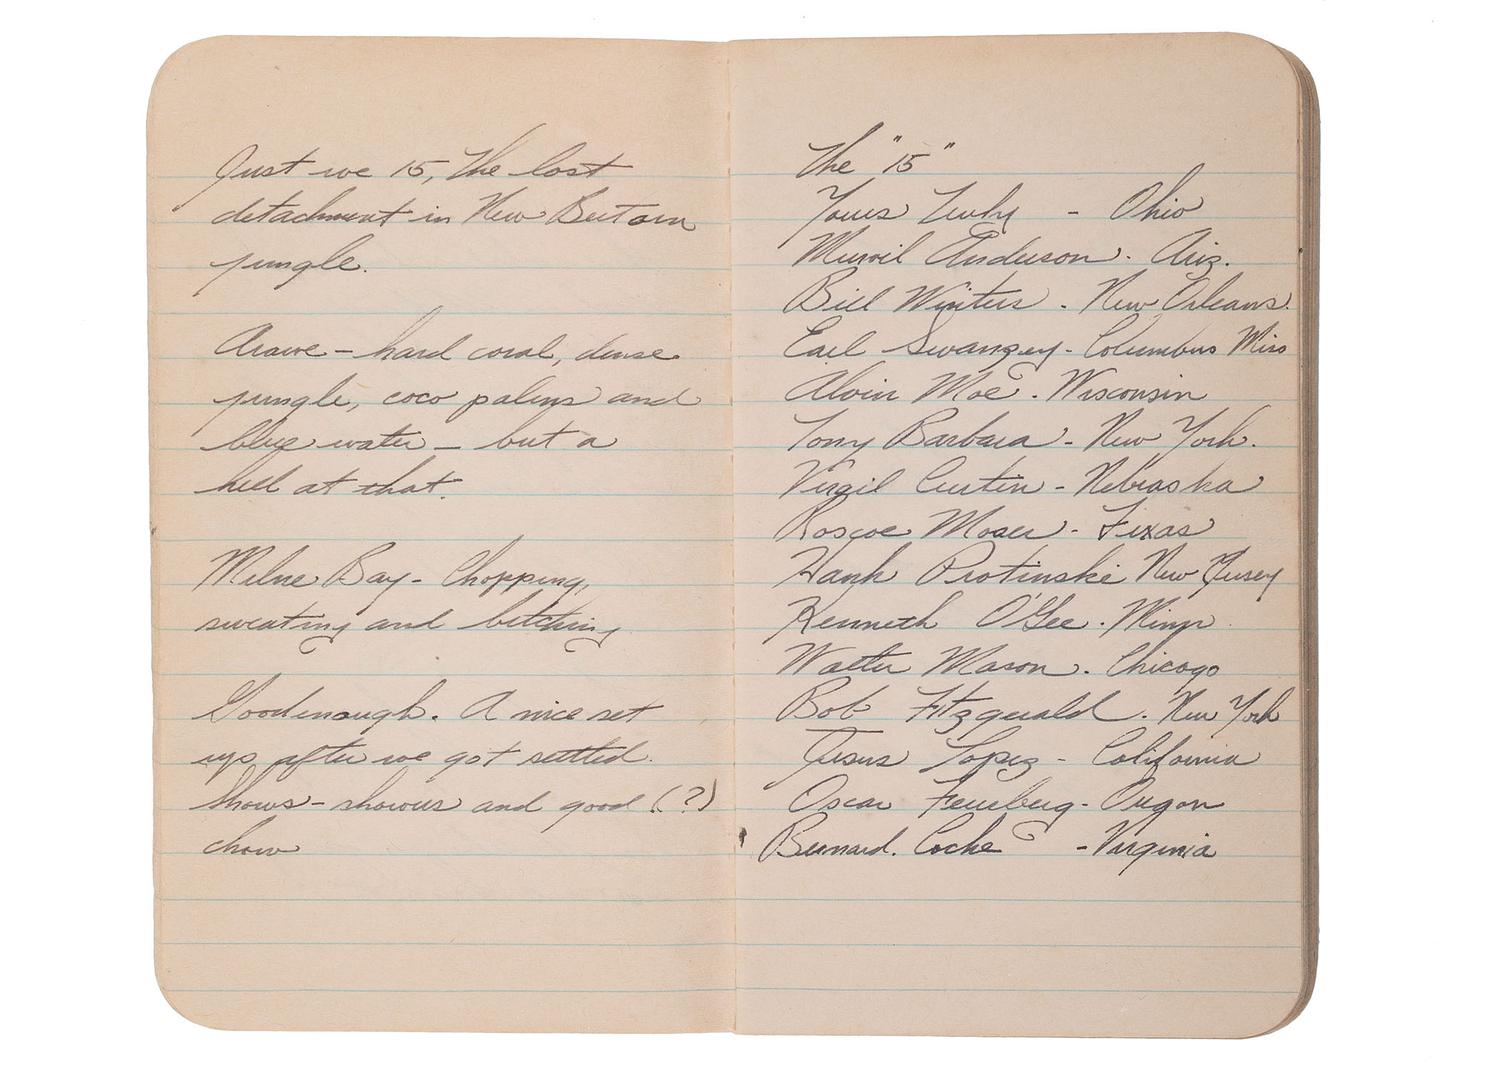 Just we 15, The lost
detachment in New Britain
jungle.
Arawe - hard coral, dense
jungle, coco palms and
blue water - but a
hell at that.
Milne Bay - Chopping,
sweating and bitching
Goodenough. A nice set
up after we got settled.
Shows - showers and good (?)
chow
The "15"
Yours Truly - Ohio
Murvil Anderson - Ariz.
Bill Winters - New Orleans.
Earl Swanzey - Columbus Miss
Alvin Moe - Wisconsin
Tony Barbara - New York.
Virgil Curtin - Nebraska
Roscoe Moser - Texas
Hank Protinski New Jersey
Kenneth O'Gee - Minn
Walter Mason - Chicago
Bob Fitzgerald - New York
Jesus Lopez - California
Oscar Feuerberg - Oregon
Bernard. Coche - Virginia